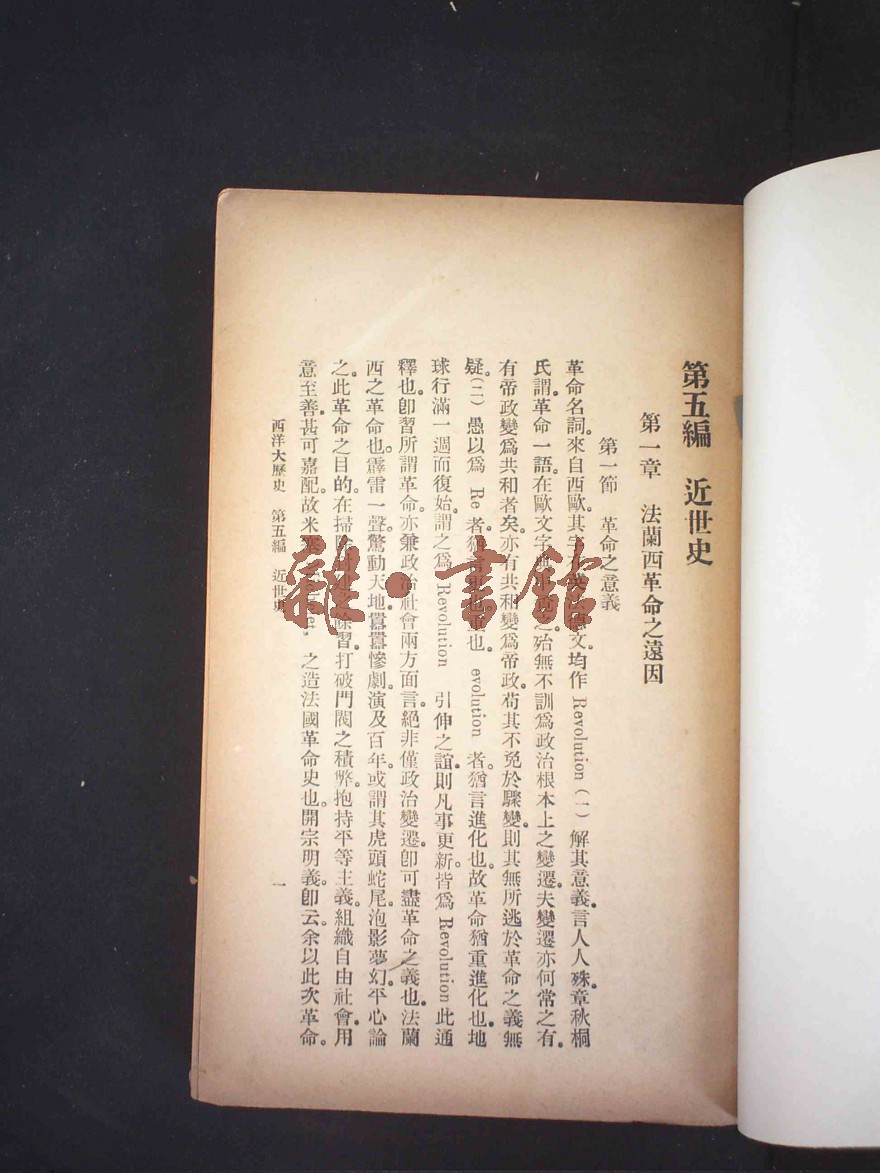 第五編　近世史
第一章　法蘭西革命之遠因
第一節　革命之意義
革命名詞。來自西歐。其字在英法德文。均作 Revolution（一）解其意義。言人人殊。章秋桐
氏謂。革命一語。在歐文字 之。殆無不訓爲政治根本上之變遷。夫變遷亦何常之有。
有帝政變爲共和者矣。亦有共和變爲帝政。苟其不免於驟變。則其無所逃於革命之義無
疑。（二）愚以爲 Re 者。猶言 也。 也。evolution 者。猶言進化也。故革命猶重進化也。地
球行滿一週而復始。謂之爲 Revolution 引伸之誼。則凡事更新。皆爲 Revolution 此通
釋也。卽習所謂革命。亦兼政治社會兩方面言。絕非僅政治變遷。卽可盡革命之義也。法蘭
西之革命也。霹雷一聲。驚動天地。囂囂慘劇。演及百年。或謂其虎頭蛇尾。泡影夢幻。平心論
之。此革命之目的。在掃除 餘習。打破門閥之積弊。抱持平等主義。組織自由社會。用
意至善。甚可嘉配。故米 之造法國革命史也。開宗明義。卽云。余以此次革命。
西洋大歷史　第五編　近世史
一
雜·書館